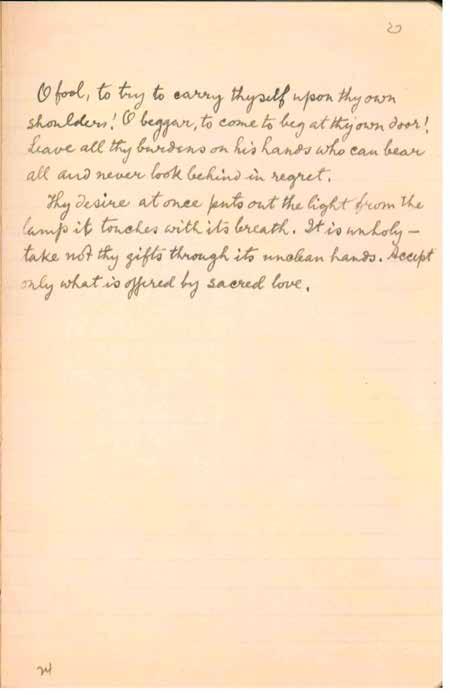 O fool, to try to carry thyself upon thy own
shoulders! O beggar, to come to beg at thy own door!
Leave all thy burdens on his hands who can bear
all and never look behind in regret.
Thy desire at once puts out the light from the
lamp it touches with its breath. It is unholy –
take not thy gifts through its unclean hands. Accept
only what is offered by sacred love.
24